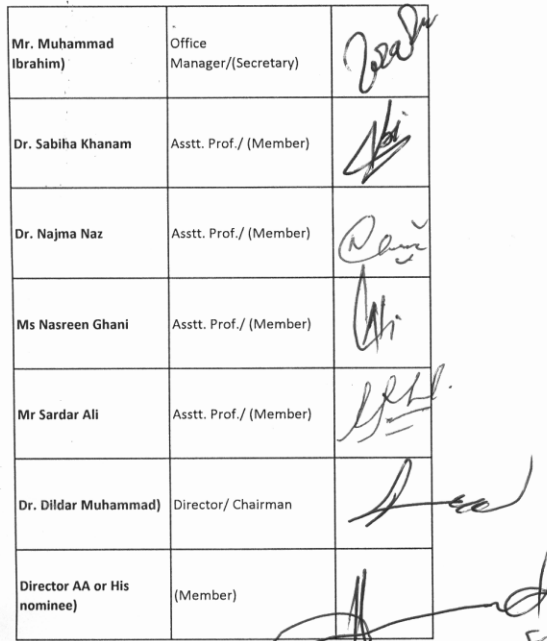 Mr. Muhammad
Ibrahim)
Office
Manager/(Secretary)
Dr. Sabiha Khanam
Asstt. Prof./ (Member)
Dr. Najma Naz
Asstt. Prof./ (Member)
Ms Nasreen Ghani
Asstt. Prof./ (Member)
Mr Sardar Ali
Asstt. Prof./ (Member)
Dr. Dildar Muhammad)
Director/ Chairman
Director AA or His
nominee)
(Member)